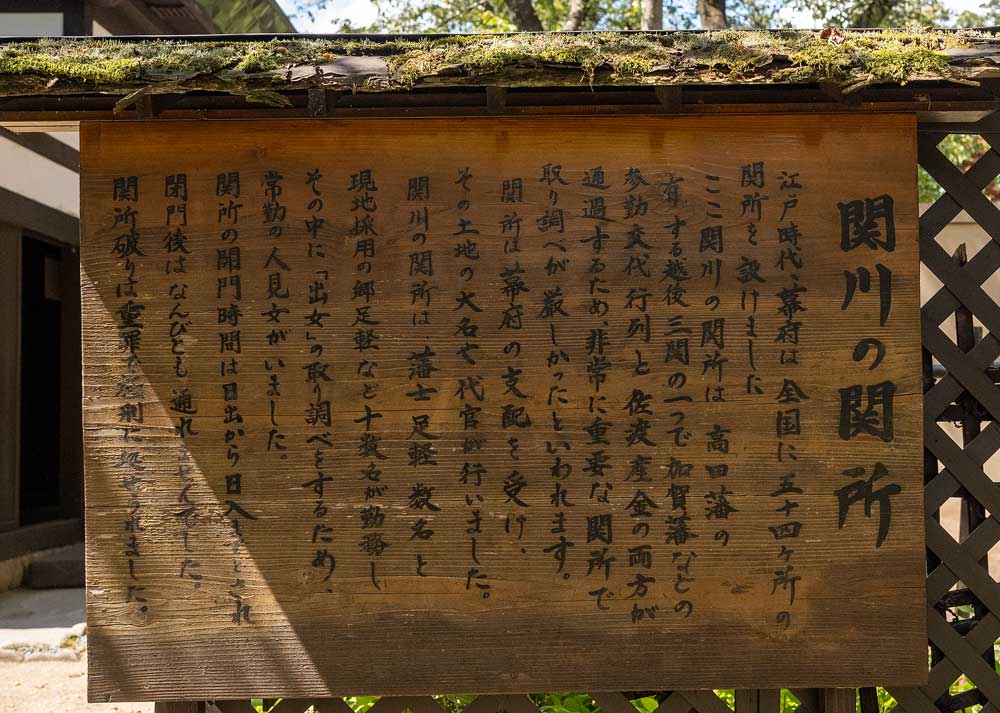 関川の関所
江戸時代、幕府は全国に五十四ヶ所の
関所を設けました
ここ関川の関所は高田藩の
有する越後三関の一つで加賀藩などの
参勤交代行列と佐渡産金の両方が
通過するため、非常に重要な関所で
取り調べが厳しかったといわれます。
関所は幕府の支配を受け、
その土地の大名や代官が行いました。
関川の関所は、藩士足軽数名と
現地採用の郷足軽など十数名が勤務し
その中に「出女」の取り調べをするため、
常勤の人見女がいました。
関所の開門時間は日出から日入までとされ
閉門後はなんびとも通れませんでした。
関所破りは重罪で極刑に処せられました。